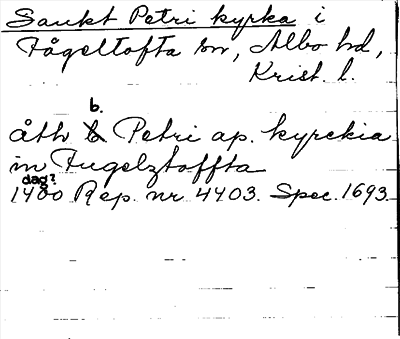 Sankt Petri kyrka i
Fågeltofta sn, Albo hd,
Krist. l.
b.
åth Petri ap. kyrckia
in Fugelztoffta
dag?
1400 Rep. nr 4403. Spec. 1693.